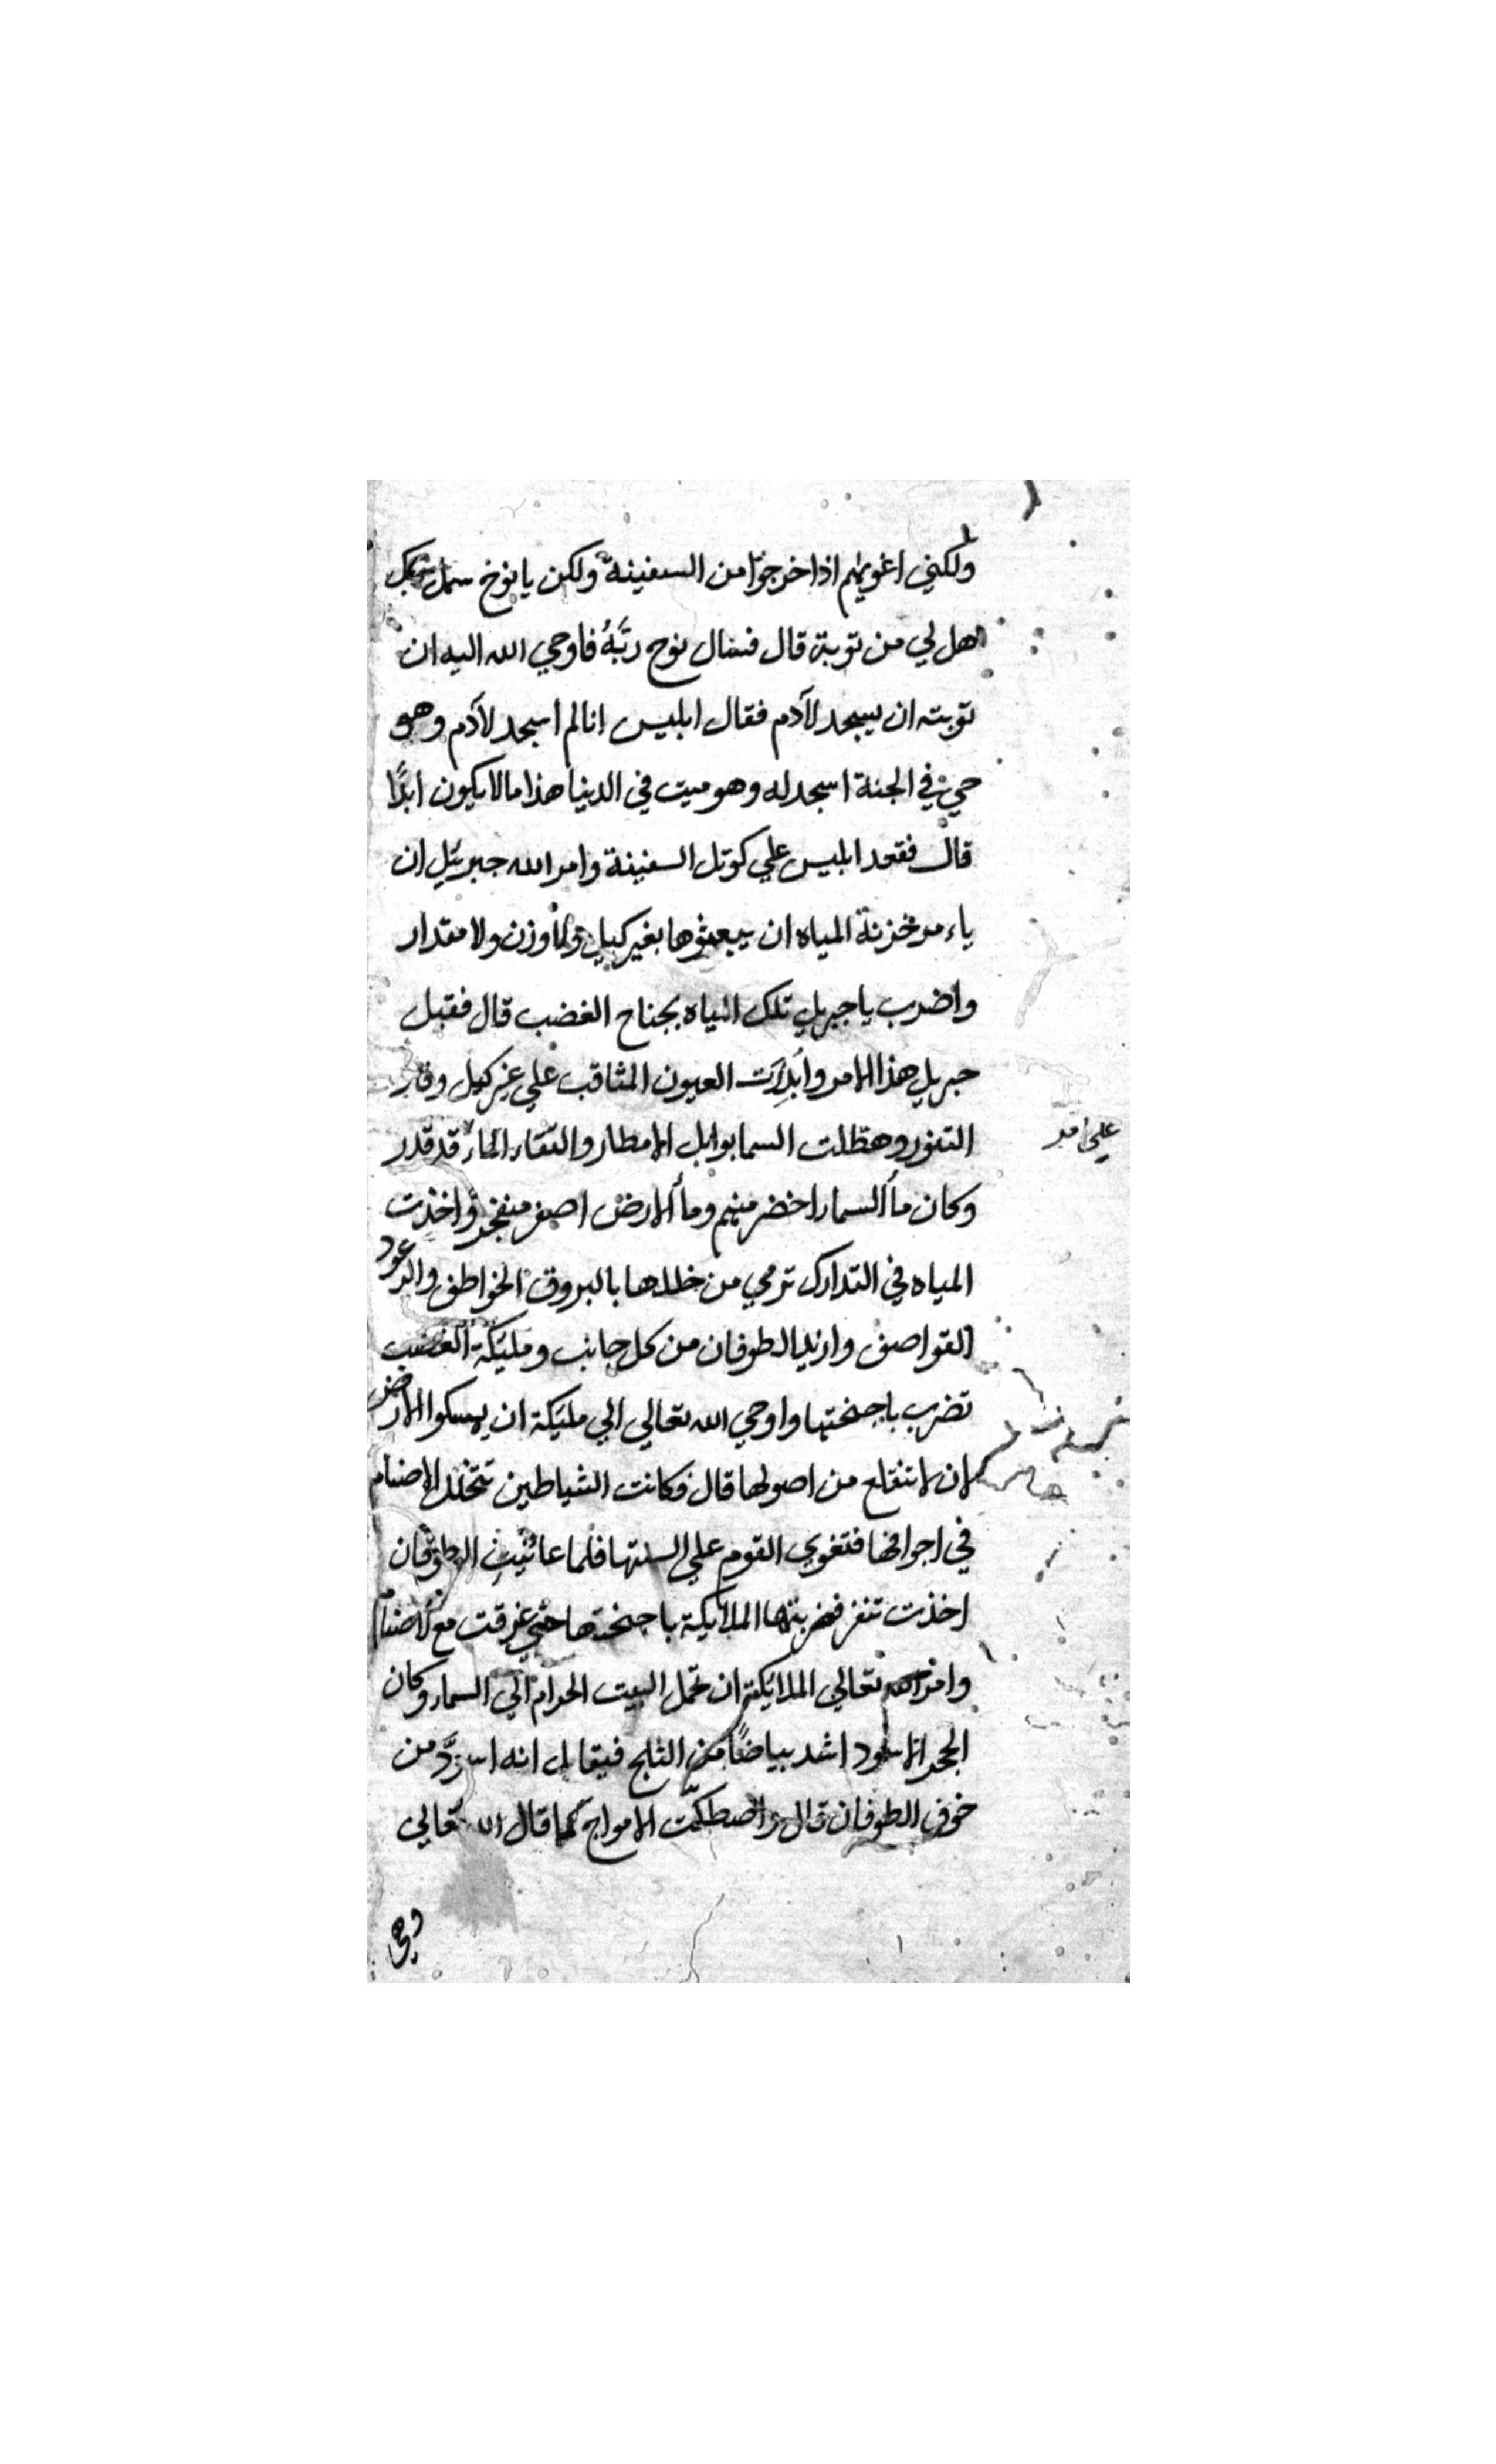 ولكني اغويهم اذا خرجوا من السفينة ولكن يا نوح سل ربك
هل لي من توبة قال فسال نوح ربَّهُ فاوحي الله اليه ان
توبته ان يسجد لآدم فقال ابليس انا لم اسجد لآدم وهو
حي في الجنة اسجد له وهو ميت في الدنيا هذا ما لا يكون ابدًا
قال فقعد ابليس علي كوتل السفينة وامر الله جبرئيل ان
ياءمر خزنة المياه ان يبعثوها بغير كيل ولا وزن ولا مقدار
واضرب يا جبريل تلك المياه بجناح الغضب قال فقبل
جبريل هذا الامر العيون المثاقب علي غير كيل وفار
التنور وهطلت السما بوابل الامطار والتقاء الماء قد قدر
علي امر
وكان ماأ السماء اخضر منهم وماأ الارض اصفر منفجر واخذت
المياه في التدارك ترمي من خللها بالبروق الخواطف والرعود
القواصف الطوفان من كل جانب ومليكة الغضب
تضرب باجنحتها واوحي الله تعالي الي مليكة ان يمسكوا الارض
لان لا تنقلع من اصولها قال وكانت الشياطين تتخلل الاصنام
في اجوافها فتغوي القوم علي السنتها فلما عاينت الطوفان
اخذت تنفر فضربتها الملايكة باجنحتها حتي غرقت مع الاصنام
وامر الله تعالي الملايكة ان تحمل البيت الحرام الي السماء وكان
الحجر الاسود اشد بياضًا من الثلج فيقال انه اسودَّ من
خوف الطوفان قال واصطكت الامواج كما قال الله تعالي
وهي